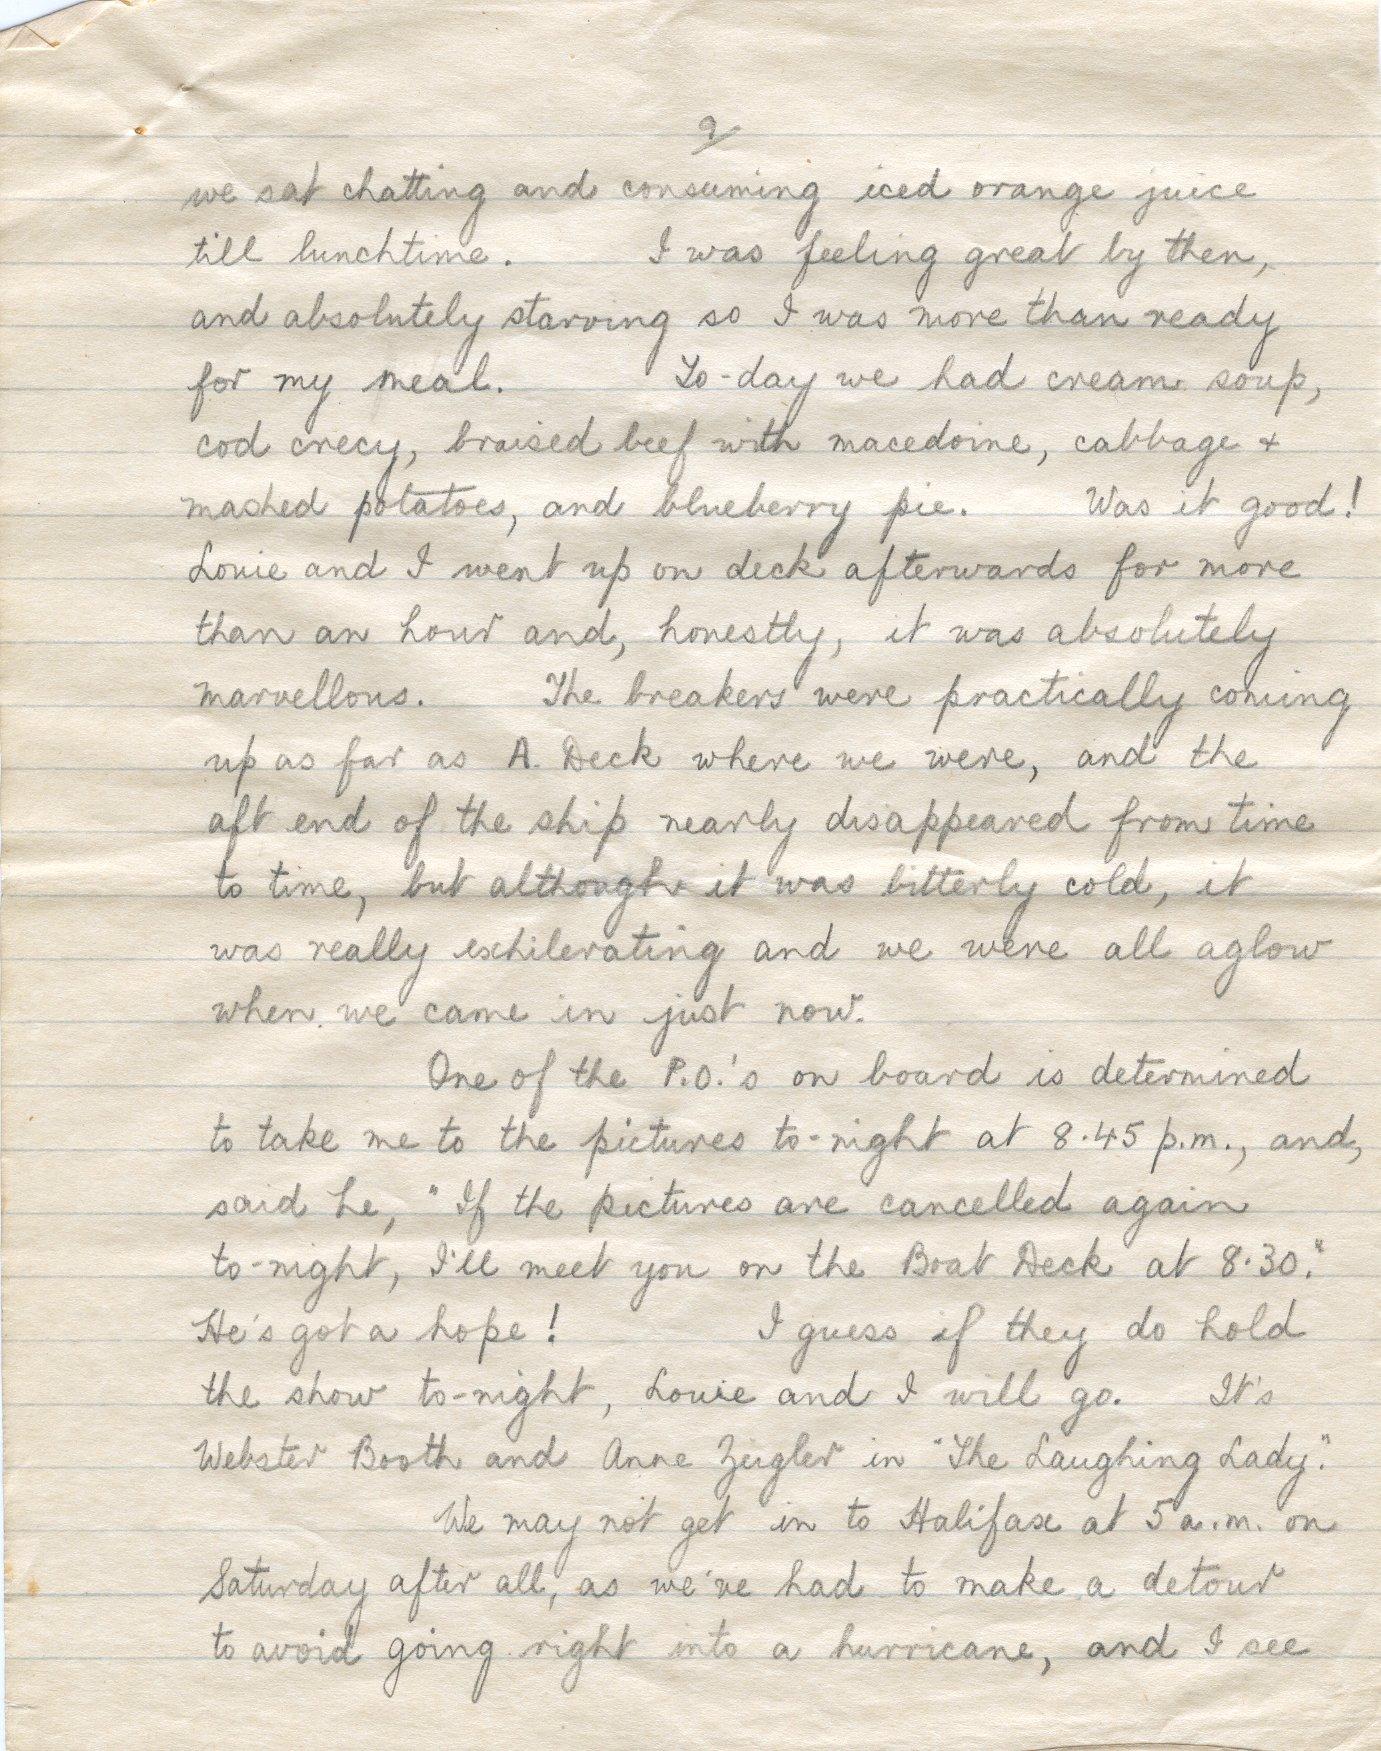 2
we sat chatting and consuming iced orange juice
till lunchtime. I was feeling great by then,
and absolutely starving so I was more than ready
for my meal. To-day we had cream soup,
cod crecy, braised beef with macedoine, cabbage +
mashed potatoes, and blueberry pie. Was it good!
Louie and I went up on deck afterwards for more
than an hour and, honestly, it was absolutely
marvellous. The breakers were practically coming
up as far as A. Deck where we were, and the
aft end of the ship nearly disappeared from time
to time, but although it was bitterly cold, it
was really exhilerating and we were all aglow
when we came in just now.
One of the P.O.'s on board is determined
to take me to the pictures to-night at 8.45 p.m., and,
said he, "If the pictures are cancelled again
to-night, I'll meet you on the Boat Deck at 8.30."
He's got a hope! I guess if they do hold
the show to-night, Louie and I will go. It's
Webster Booth and Anne Zeigler in "The Laughing Lady."
We may not get in to Halifax at 5 a.m. on
Saturday after all, as we've had to make a detour
to avoid going right into a hurricane, and I see